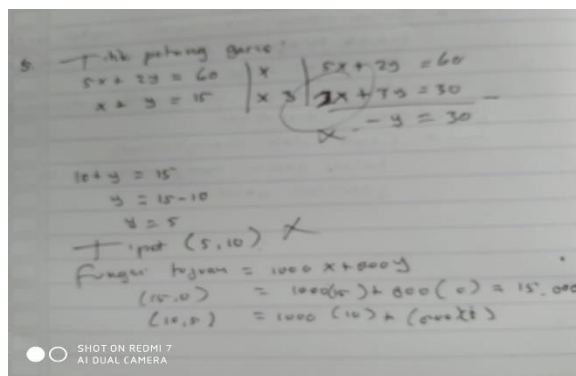 5. Titik potong garis:
5x + 2y = 60 | x | 5x + 2y = 60
x + y = 15 | x 3 | 3x + 3y = 30 -
x - y = 30
10 + y = 15
y = 15 - 10
y = 5
Titik pot (5,10) X
Fungsi tujuan = 1000 x + 800 y
(15,0) = 1000(15) + 800(0) = 15.000
(10,5) = 1000 (10) +
SHOT ON REDMI 7
AI DUAL CAMERA